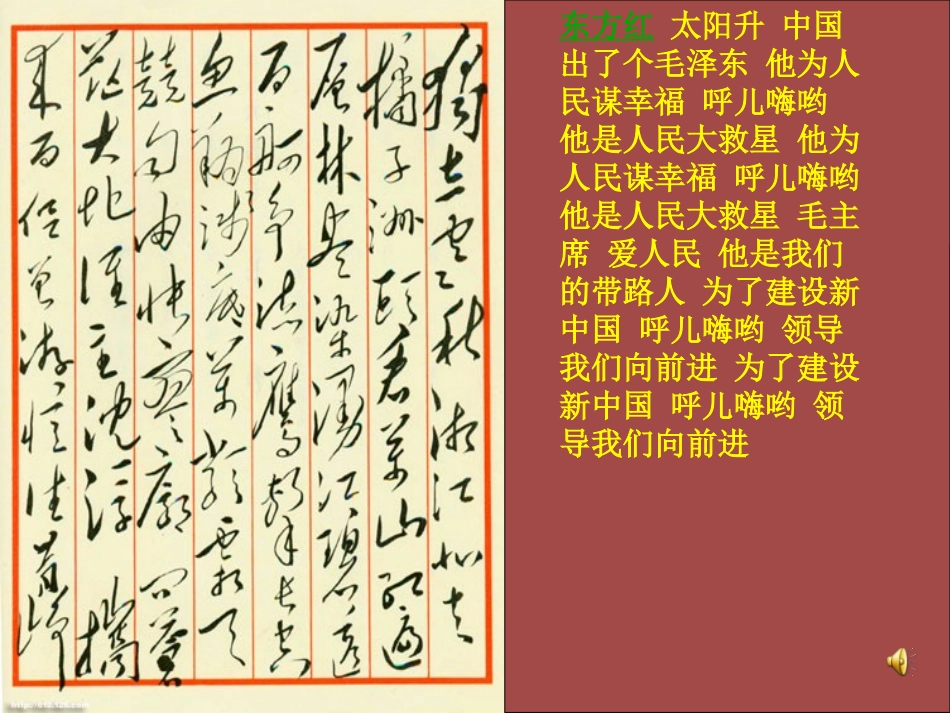 獨立寒秋湘江北去
橘子洲頭看萬山紅遍
層林盡染漫江碧透
百舸爭流鷹擊長空
魚翔淺底萬類霜天
競自由悵寥廓問蒼
茫大地誰主沉浮 攜
來百侶曾游憶往昔崢
东方红 太阳升 中国
出了个毛泽东 他为人
民谋幸福 呼儿嗨哟
他是人民大救星 他为
人民谋幸福 呼儿嗨哟
他是人民大救星 毛主
席 爱人民 他是我们
的带路人 为了建设新
中国 呼儿嗨哟 领导
我们向前进 为了建设
新中国 呼儿嗨哟 领
导我们向前进